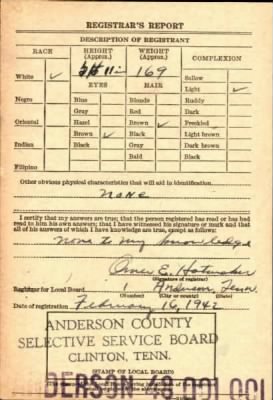 REGISTRAR'S REPORT
DESCRIPTION OF REGISTRANT
RACE HEIGHT (Approx.) WEIGHT (Approx.) COMPLEXION
5 11 169 Sallow
White ✓ EYES HAIR Light ✓
Negro Blue Blonde Ruddy
Gray Red Dark
Oriental Hazel Brown ✓ Freckled
Brown ✓ Black Light brown
Indian Black Gray Dark brown
Bald Black
Filipino
Other obvious physical characteristics that will aid in identification
None
I certify that my answers are true; that the person registered has read or has had
read to him his own answers; that I have witnessed his signature or mark and that
all of his answers of which I have knowledge are true, except as follows:
None to my knowledge
(Signature of registrar)
Registrar for Local Board 1 Anderson, Tenn.
(Number) (City or county) (State)
Date of registration February 16, 1942
ANDERSON COUNTY
SELECTIVE SERVICE BOARD
CLINTON, TENN.
(STAMP OF LOCAL BOARD)